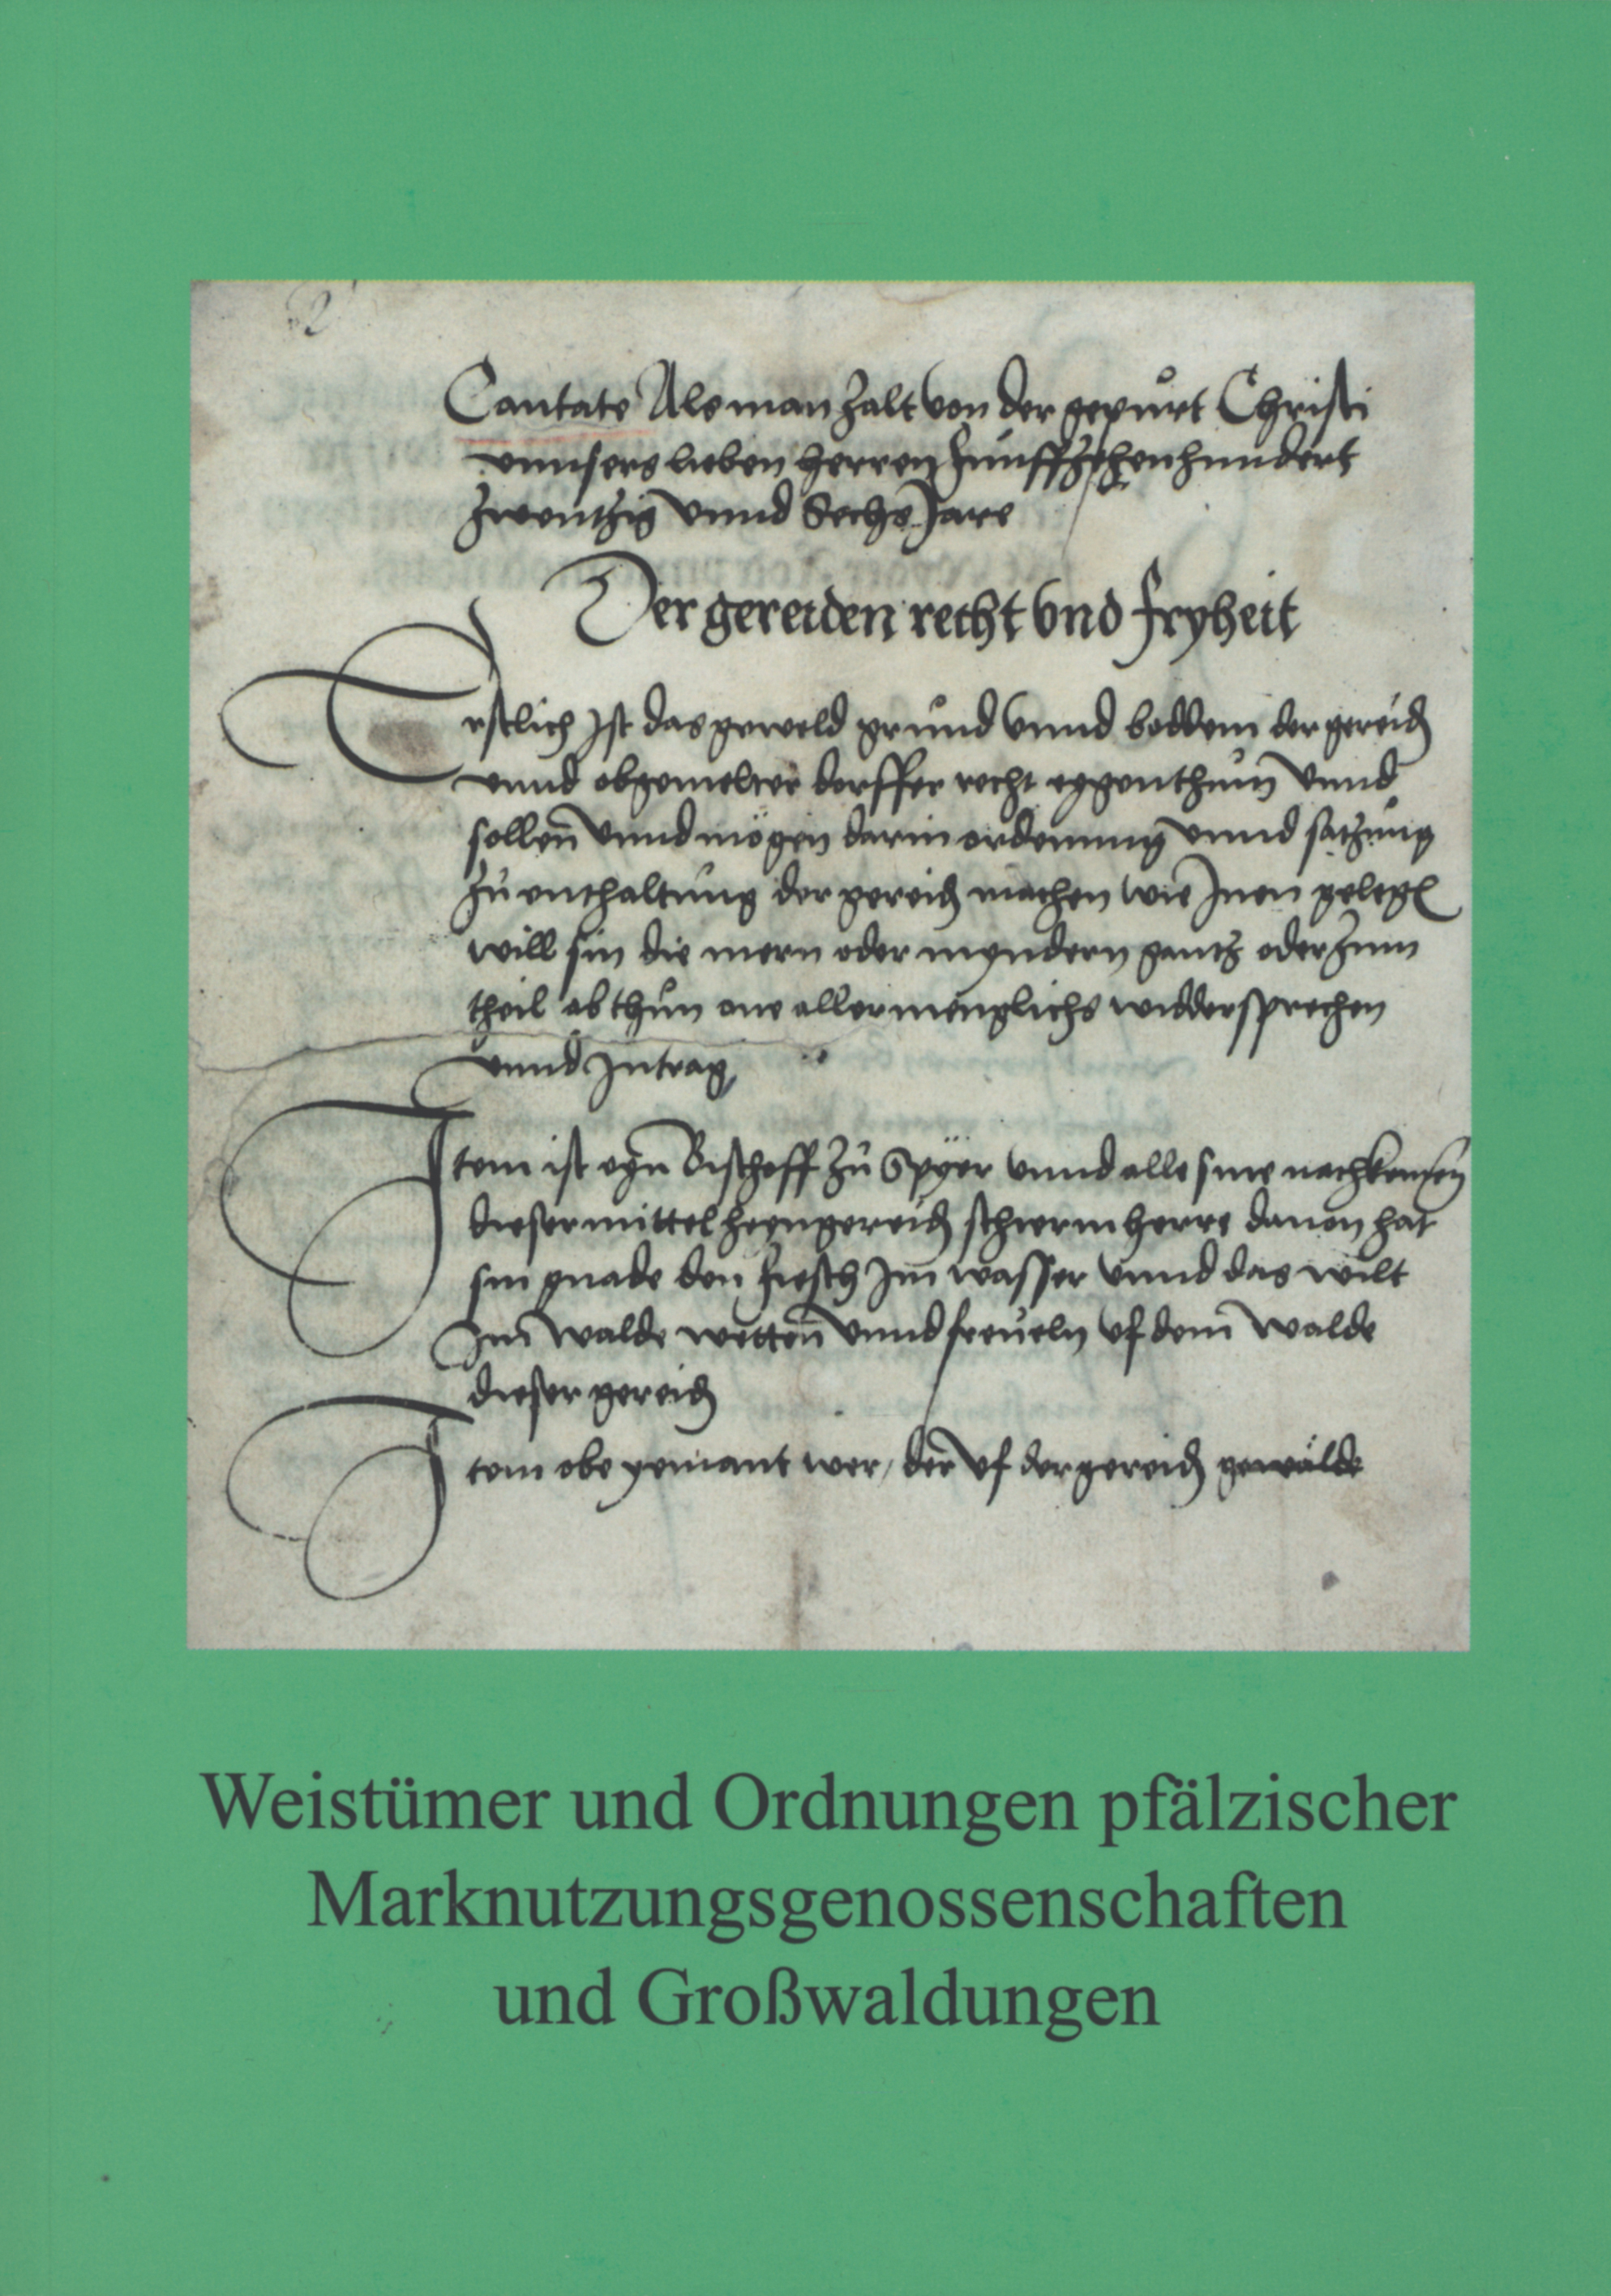 2
Cantate Als man zalt von der gepurt Christi
vnnsers lieben herren Funffzehenhundert
zwentzig vnnd Sechs Jare
Der gereiden recht vnd fryheit
Erstlich Ist das geweld grund vnnd boddem der gereid
vnnd obgemelter dorffer recht eygenthum vnnd
sollen vnnd mögen darin ordenung vnnd satzung
zu enthaltung der gereid machen wie Inen geleg
will sin die mern oder myndern gantz oder zum
theil abthun one allermenglichs widdersprechen
vnnd Intrag
Item ist eyn Bischoff zu Spÿer vnnd alle sine nachkomen
dieser mittel heyngereid schierm herre dauon hat
sin gnade den fiesch Im wasser vnnd das wilt
Im walde wetten vnnd freueln vf dem walde
dieser gereid
Item obe yemant wer, der vf der gereid gewälde
Weistümer und Ordnungen pfälzischer
Marknutzungsgenossenschaften
und Großwaldungen